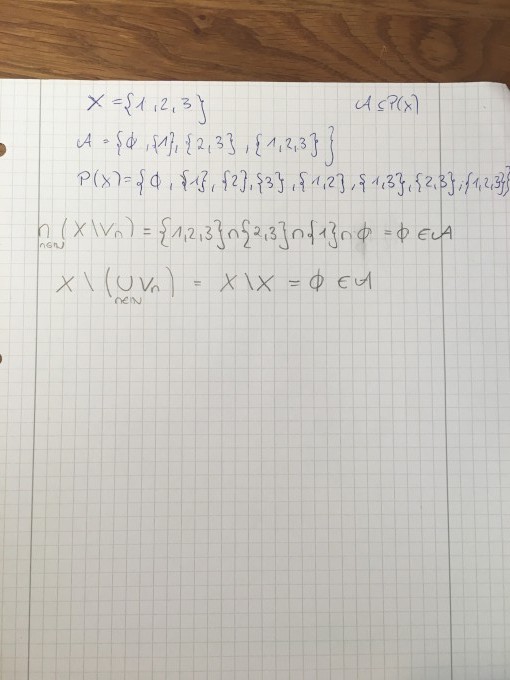 X = {1,2,3} 𝒜 ⊆ P(X)
𝒜 = {∅, {1}, {2,3}, {1,2,3}}
P(X) = {∅, {1}, {2}, {3}, {1,2}, {1,3}, {2,3}, {1,2,3}}
∩_{n∈ℕ} (X \ V_n) = {1,2,3} ∩ {2,3} ∩ {1} ∩ ∅ = ∅ ∈ 𝒜
X \ (∪_{n∈ℕ} V_n) = X \ X = ∅ ∈ 𝒜